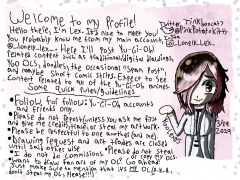 Welcome to my Profile!
Hello there, I'm Lex. It's nice to meet you!
You probably know me from my main account,
Here I'll post Yu-Gi-Oh!
related content such as traditional/digital drawings,
YGO OCs, doodles, the occasional "Spam Post",
and maybe short comic strips. Expect to see
content related to all of the Yu-Gi-Oh animes
Some quick rules/guidelines
• Follow for follow: Yu-Gi-Oh accounts
and friends only.
• Please do not repost (unless you ask me first
and give me credit), trace, or steal my artwork.
• Please be respectful to one another (and me)
• Drawing request and art trades are closed
until said otherwise
• Please do not steal
or copy my OCs.
• I do not do commissions.
• Wanna to draw fan art of my OC? Go ahead!
Just make sure to mention that it's MY OC
don't steal my OCs please!!!
Twitter:
@PinkPotatoKitty
2019